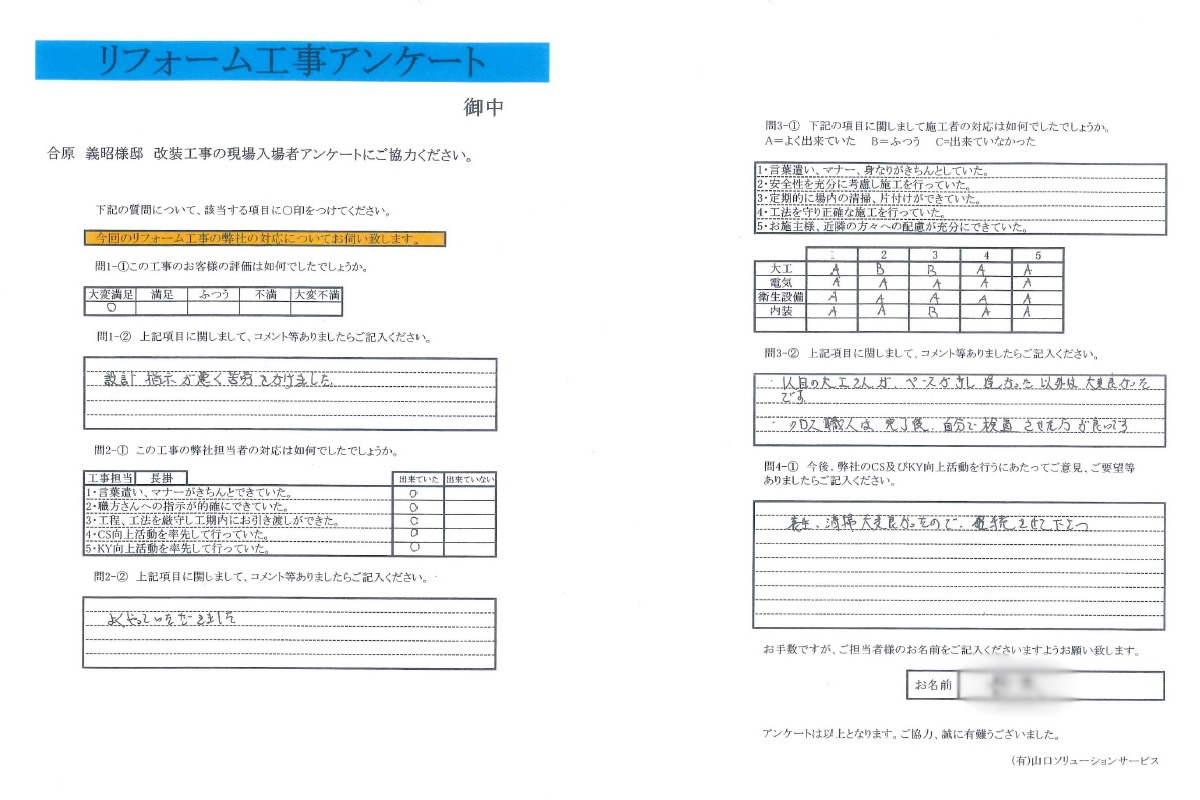 リフォーム工事アンケート
御中
合原 義昭様邸 改装工事の現場入場者アンケートにご協力ください。
下記の質問について、該当する項目に○印をつけてください。
今回のリフォーム工事の弊社の対応についてお伺い致します。
問1-①この工事のお客様の評価は如何でしたでしょうか。
大変満足 満足 ふつう 不満 大変不満
○
問1-② 上記項目に関しまして、コメント等ありましたらご記入ください。
設計 指示が悪く苦労をかけました
問2-① この工事の弊社担当者の対応は如何でしたでしょうか。
工事担当 長掛 出来ていた 出来ていない
1・言葉遣い、マナーがきちんとできていた。 ○
2・職方さんへの指示が的確にできていた。 ○
3・工程、工法を厳守し工期内にお引き渡しができた。 ○
4・CS向上活動を率先して行っていた。 ○
5・KY向上活動を率先して行っていた。 ○
問2-② 上記項目に関しまして、コメント等ありましたらご記入ください。
よくやっていただきました
問3-① 下記の項目に関しまして施工者の対応は如何でしたでしょうか。
A=よく出来ていた B=ふつう C=出来ていなかった
1・言葉遣い、マナー、身なりがきちんとしていた。
2・安全性を充分に考慮し施工を行っていた。
3・定期的に場内の清掃、片付けができていた。
4・工法を守り正確な施工を行っていた。
5・お施主様、近隣の方々への配慮が充分にできていた。
1 2 3 4 5
大工 A B B A A
電気 A A A A A
衛生設備 A A A A A
内装 A A B A A
問3-② 上記項目に関しまして、コメント等ありましたらご記入ください。
・1人目の大工さんが、ペースが少し遅かった以外は大変良かった
です
・クロス職人は 完了後、自分で検査 させた方が良いです
問4-① 今後、弊社のCS及びKY向上活動を行うにあたってご意見、ご要望等
ありましたらご記入ください。
清掃大変良かったので、継続させて下さい
お手数ですが、ご担当者様のお名前をご記入くださいますようお願い致します。
お名前
アンケートは以上となります。ご協力、誠に有難うございました。
(有)山口ソリューションサービス